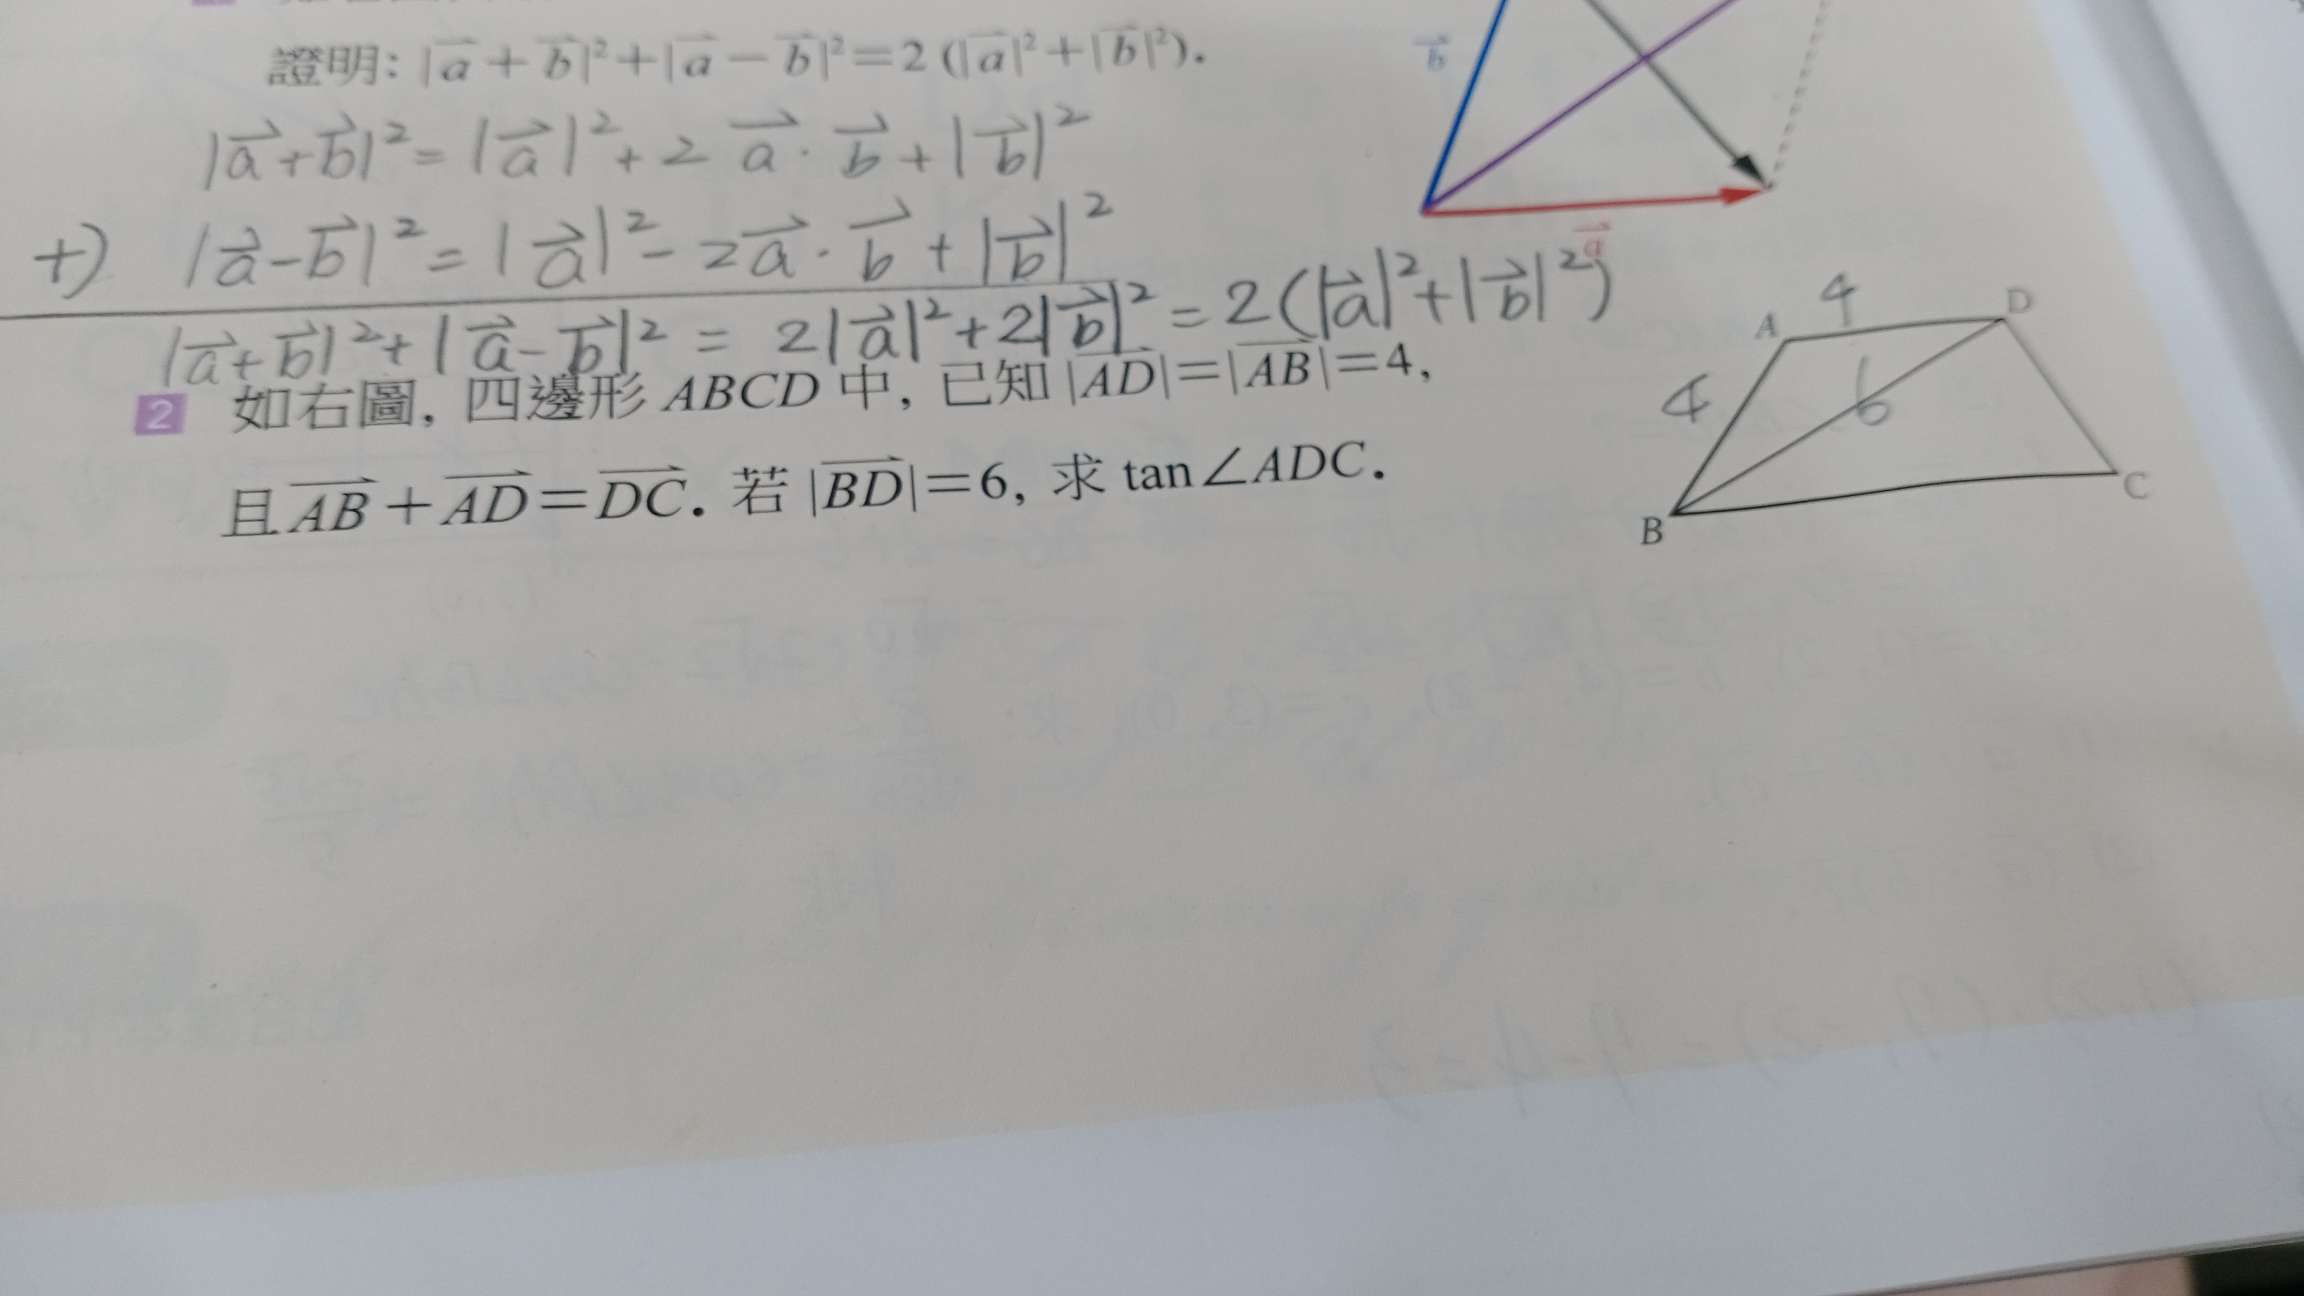 證明: |a⃗+b⃗|²+|a⃗−b⃗|²=2(|a⃗|²+|b⃗|²).
b⃗
|a⃗+b⃗|²=|a⃗|²+2a⃗·b⃗+|b⃗|²
+) |a⃗-b⃗|²=|a⃗|²-2a⃗·b⃗+|b⃗|²
a⃗
|a⃗+b⃗|²+|a⃗-b⃗|² = 2|a⃗|²+2|b⃗|² = 2(|a⃗|²+|b⃗|²)
2 如右圖, 四邊形 ABCD 中, 已知 |AD⃗|=|AB⃗|=4,
且 AB⃗+AD⃗=DC⃗. 若 |BD⃗|=6, 求 tan∠ADC.
A 4 D
4 6
B C